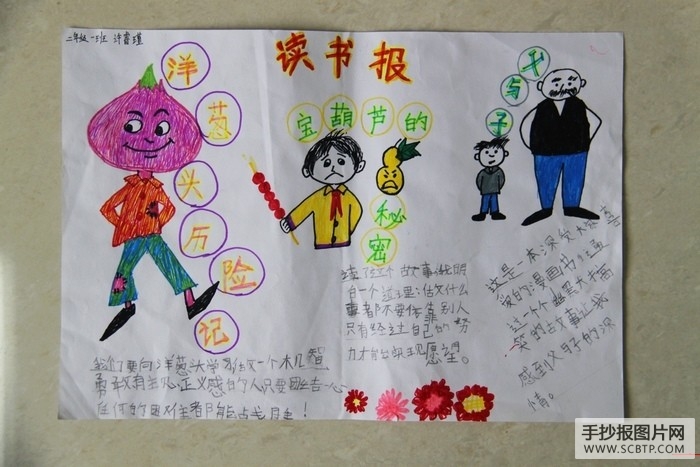 二年级一班 许睿瑾
读书报
洋葱头历险记
宝葫芦的秘密
父与子
读了这个故事我明
白一个道理:做什么
事都不要依靠别人
只有经过自己的努
力才能实现愿望。
这是一本深受大家喜
爱的漫画书
一个个幽默
笑的故事让我
感到父子的深
情。
我们要向洋葱头学习做一个机智
勇敢有主见正义感的人只要团结一心
任何的困难都能占戈月生!
手抄报图片网
WWW.SCBTP.COM